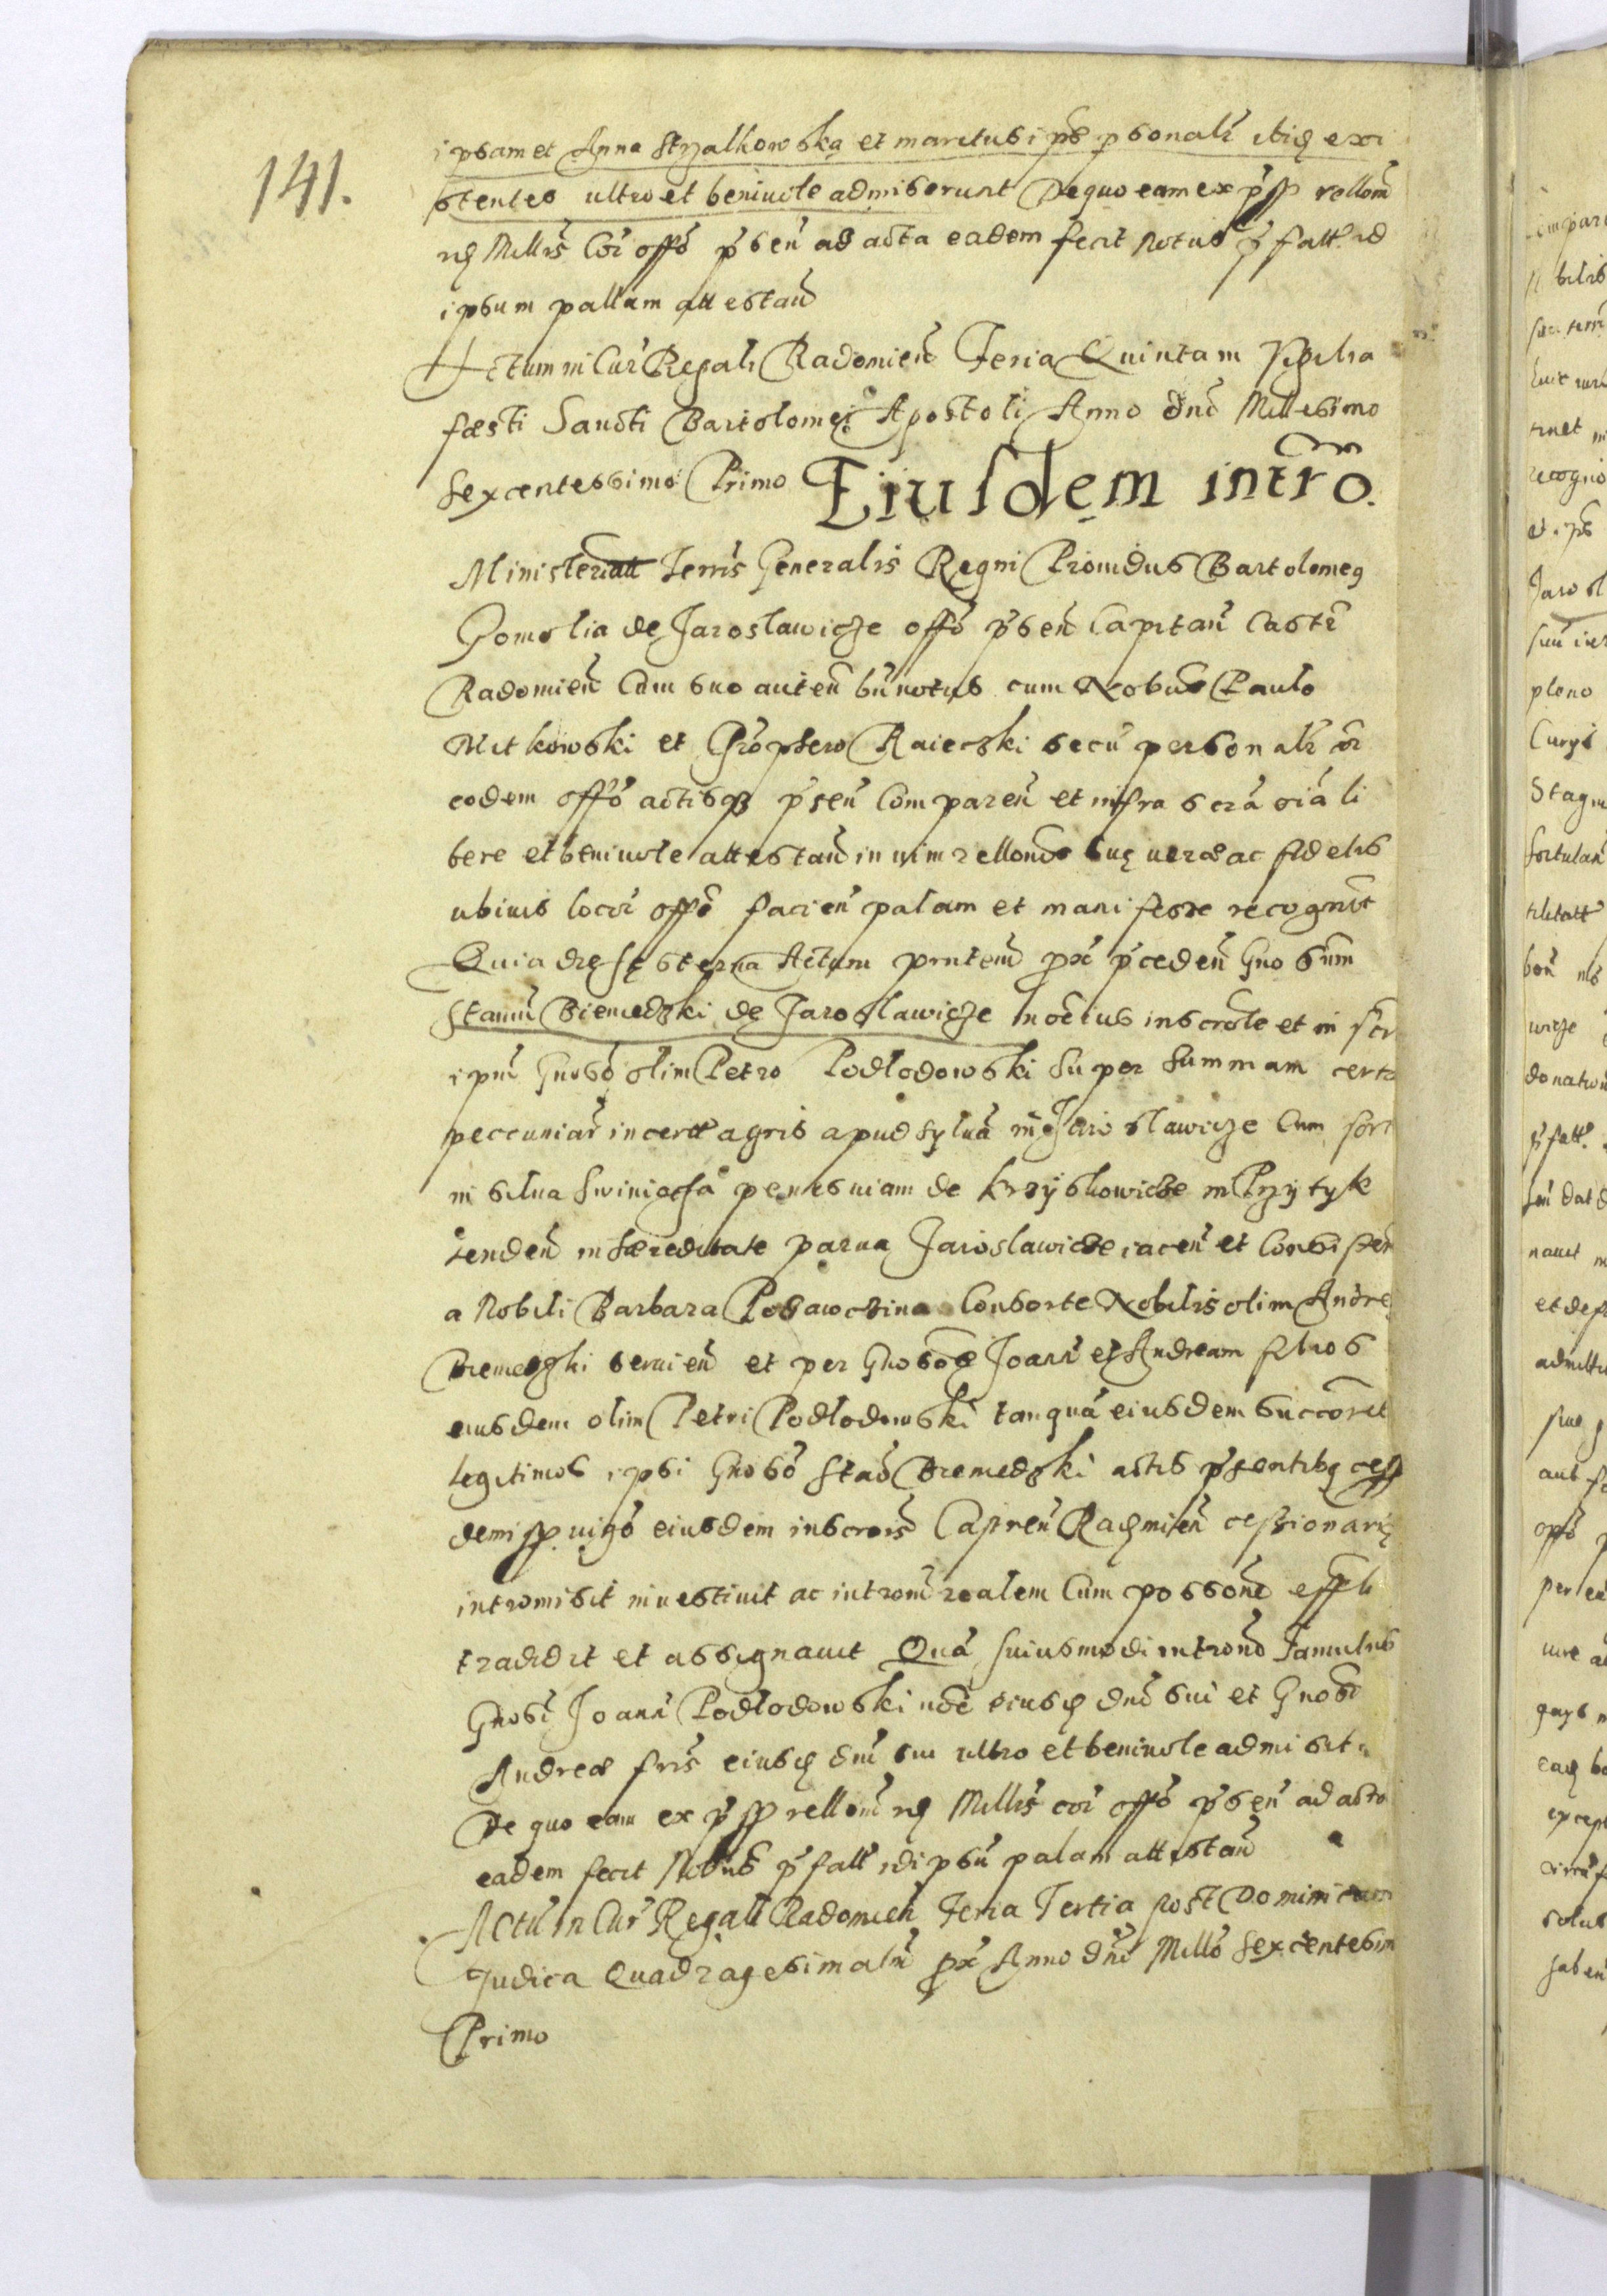 141.
ipsamet Anna Strzalkowska et maritus ips psonalr ibiq exi
stentes ultro et beniuole admiserunt De quo eam ex pss rellom
nq Millrs Cor offo psen ad acta eadem fecit Notus pfatt. id
ipsum pallam attestan
Actum in Cur Regali Radomien Feria Quinta in Vigilia
fæsti Sancti Bartolomei Apostoli Anno dni Millesimo
sexcentessimo Primo Eiusdem intro.
Ministeriall Terrs Generalis Regni Prouidus Bartolomeq
Gomolia de Jaroslawicze offo psen Capitan Castr
Radomien Cum suo auten bn notus cum Nobus Paulo
Mitkowski et Chroptero Raieczki secu personalr cor
eodem offo actisq psen Comparen et infra scra oia li
bere et beniuole attestan in uim rellonis suę ueræ ac fidelis
ubiuis locor offo facien palam et manifeste recognit
Quia die hesterna Actum pnntem pr pceden Gnosum
Stanm Biemedzki de Jaroslawicze in oeius inscrole et in scr
ipm Gnoso olim Petro Podlodowski super summam certa
peccuniar in certt agris apud sylua in Jaroslawicze Cum sort
in silua Swiniacha penes uiam de Krzyskowicze in Przytyk
tenden in hæreditate parua Jaroslawicze iacen et Consisten
a Nobili Barbara Posawczina Consorte Nobilis olim Andre
Biemedzki seruien et per Gnosos Joann et Andream filios
eiusdem olim Petri Podlodowski tanqua eiusdem succoret
legitimos ipsi Gnoso Stao Biemedzki actis psentibq cess
demiss uigo eiusdem inscrois Capren Radmien cessionariq
intromisit inuestiuit ac introm realem Cum possone effli
tradidit et assignauit Qua huiusmodi intronē Famulus
Gnosi Joann Podlodowski noe eiusq dni sui et Gnosi
Andreæ fris eiusq dni sui ultro et beniuole admisit
De quo eam ex pss rellom nq Millrs cor offo psen ad acta
eadem fecit Notus pfatt idipsu palam attestan
Actu in Cur Regali Radomien Feria Tertia post Dominicam
Judica Quadragesimalm pr Anno dni Millo sexcentesim
Primo